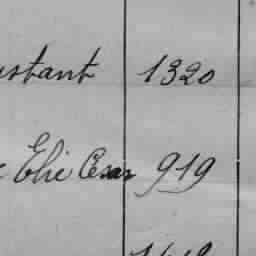 ustant 1320
Elie Cesar 919